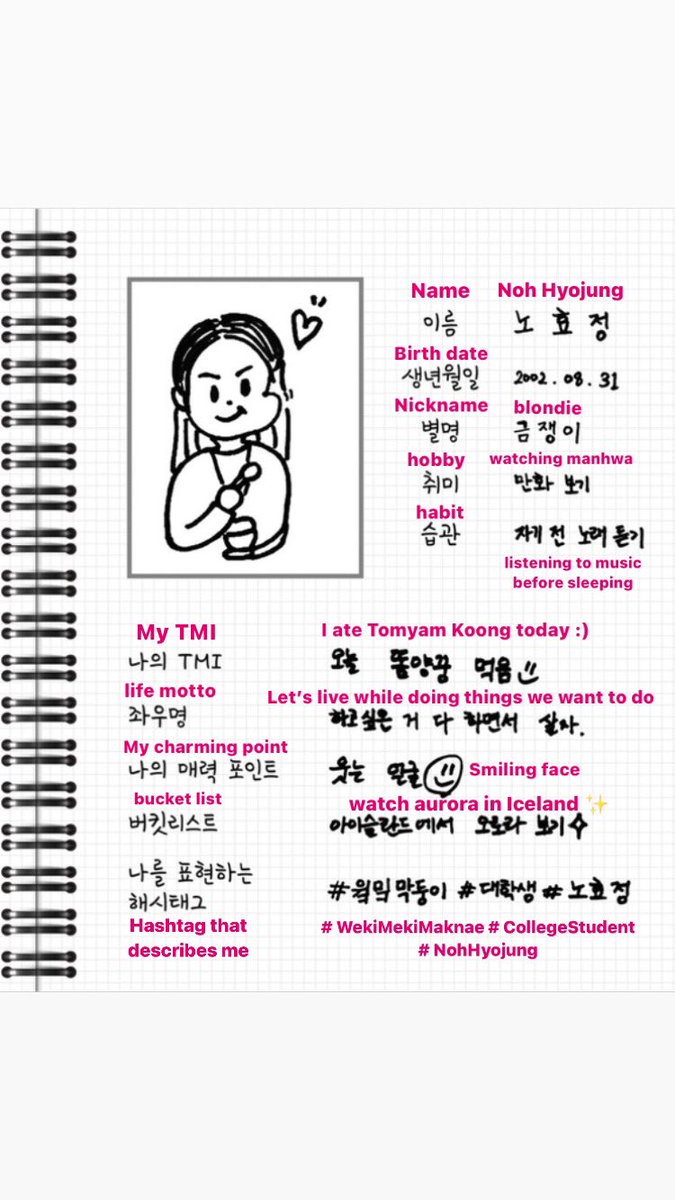 Name Noh Hyojung
이름 노 효 정
Birth date
생년월일 2002.08.31
Nickname blondie
별명 금쟁이
hobby watching manhwa
취미 만화 보기
habit
습관 자기 전 노래 듣기
listening to music
before sleeping
My TMI I ate Tomyam Koong today :)
나의 TMI 오늘 똠양꿍 먹음
life motto Let’s live while doing things we want to do
좌우명 하고싶은 거 다 하면서 살자.
My charming point
나의 매력 포인트 웃는 얼굴 Smiling face
bucket list watch aurora in Iceland ✨
버킷리스트 아이슬란드에서 오로라 보기
나를 표현하는
해시태그 #위키막둥이 #대학생 #노효정
Hashtag that # WekiMekiMaknae # CollegeStudent
describes me # NohHyojung